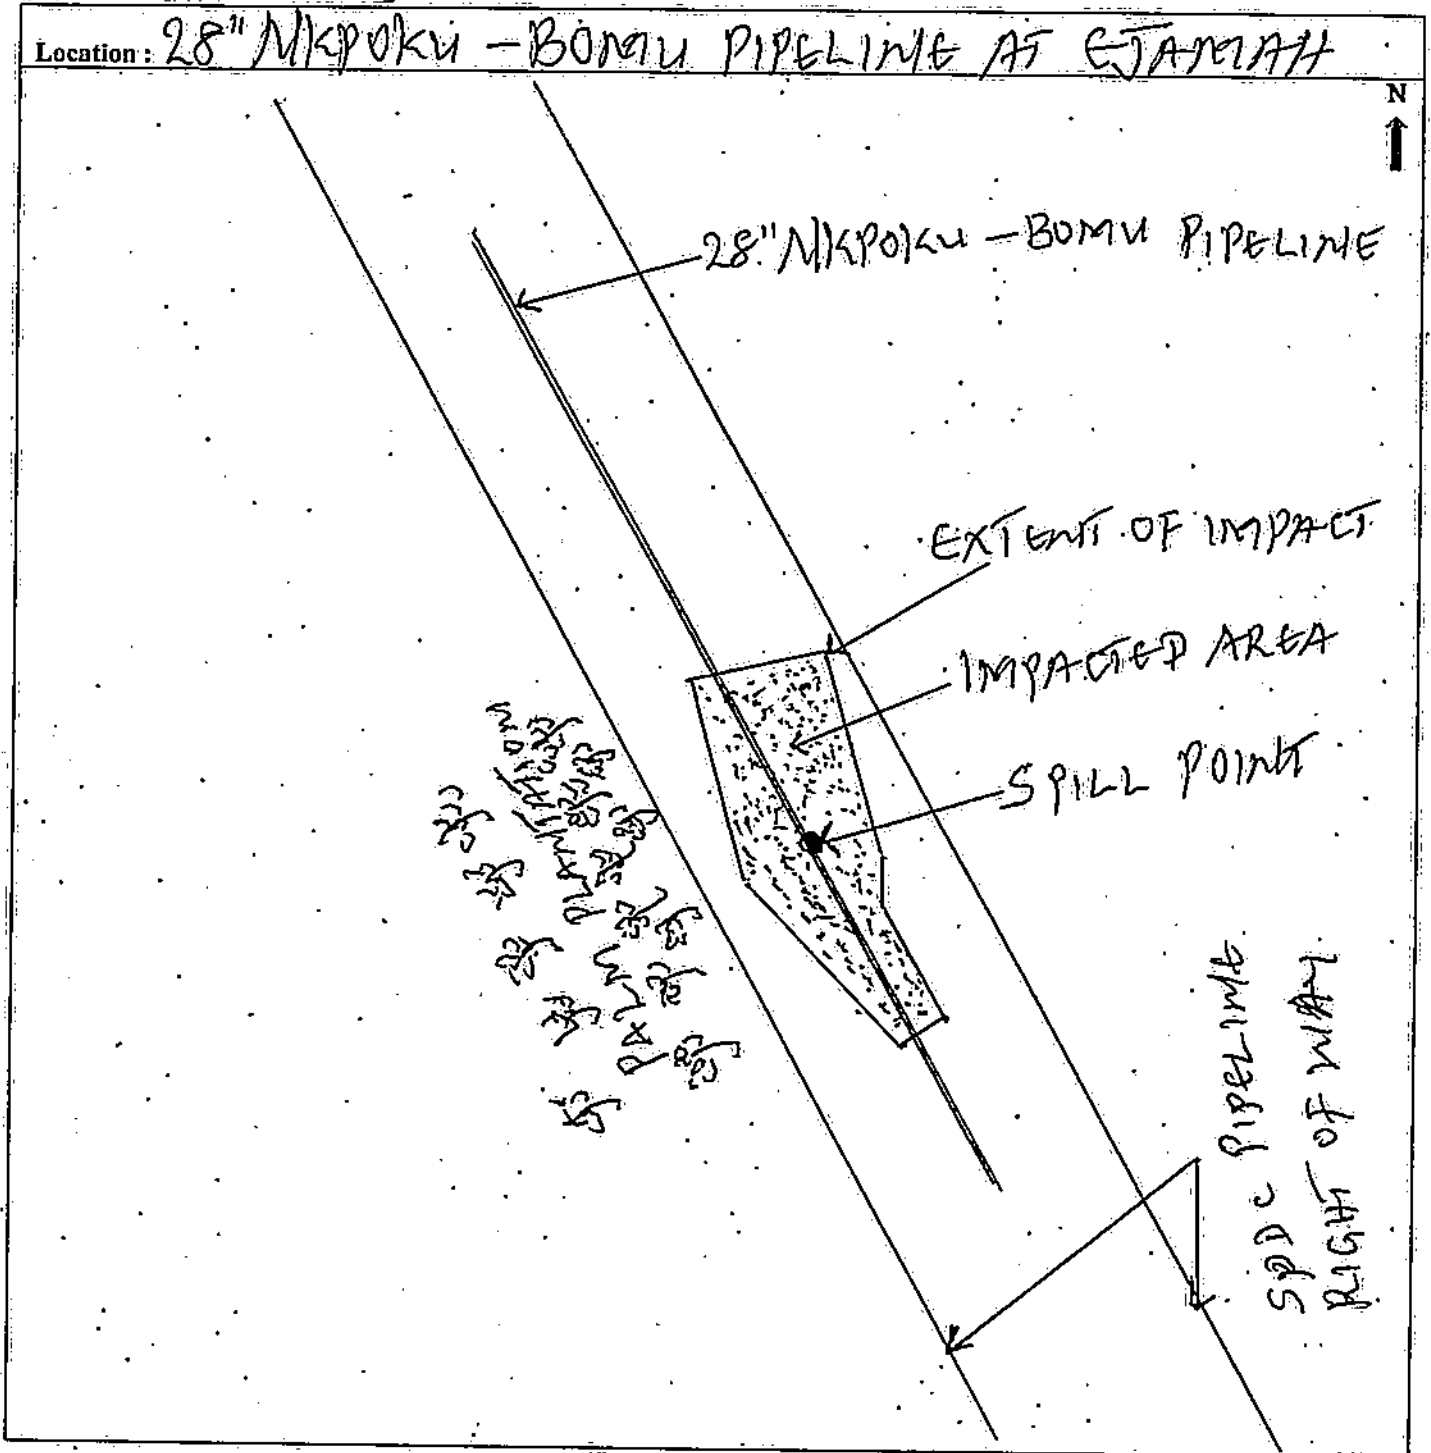 Location : 28" NKPOKU - BOMU PIPELINE AT EJAMAH
N
28" NKPOKU - BOMU PIPELINE
EXTENT OF IMPACT
IMPACTED AREA
SPILL POINT
PALM PLANTATION
SPDC PIPELINE
RIGHT OF WAY